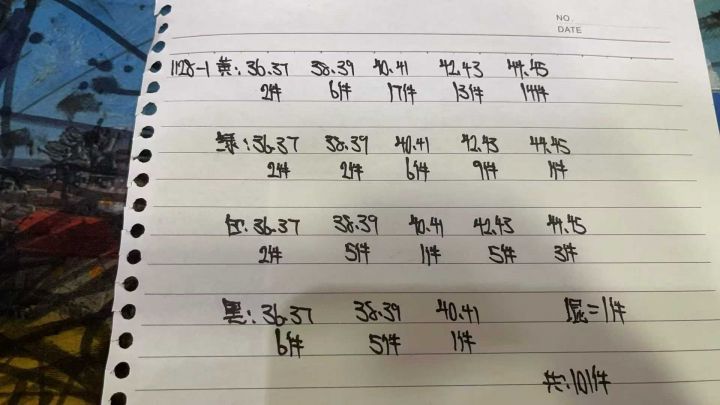 NO.
DATE
1128-1 黄: 36.37 38.39 40.41 42.43 44.45
2件 6件 17件 13件 14件
绿: 36.37 38.39 40.41 42.43 44.45
2件 2件 6件 9件 1件
白: 36.37 38.39 40.41 42.43 44.45
2件 5件 1件 5件 3件
黑: 36.37 38.39 40.41 混=1件
6件 5件 1件
共:101件